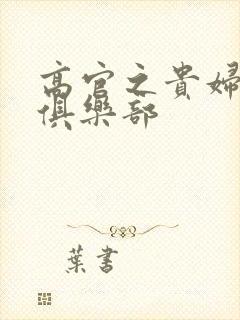 高官之貴婦
俱樂部
葉書